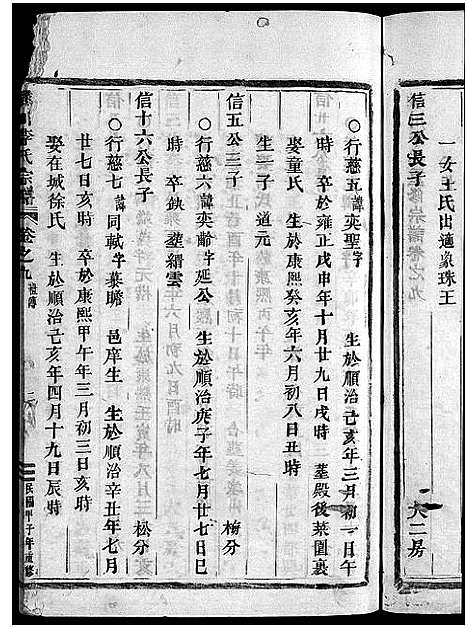 一女王氏出適象珠王
信三公長子
大二房
○行慈五諱奕聖字 生於順治己亥年三月初一日午
時 卒於雍正戊申年十月廿九日戌時 塟殿後菜園裏
娶童氏 生於康熙癸亥年六月初八日丑時
信五公三子 梅分
○行慈六諱奕齡字延公 生於順治庚子年七月廿七日巳
時 卒缺 塟縉雲
信十六公長子 松分
○行慈七諱同軾字慕瞻 邑庠生 生於順治辛丑年七月
廿七日亥時 卒於康熙甲午年三月初三日亥時
娶在城徐氏 生於順治己亥年四月十九日辰時
李氏宗譜 卷之九
民國甲子年重修